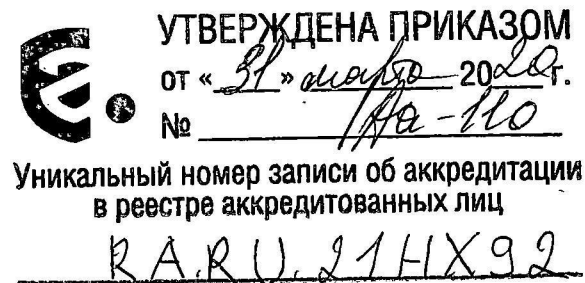 УТВЕРЖДЕНА ПРИКАЗОМ
от «31» марта 2020г.
№ Аа-110
Уникальный номер записи об аккредитации
в реестре аккредитованных лиц
RA.RU.21НХ92